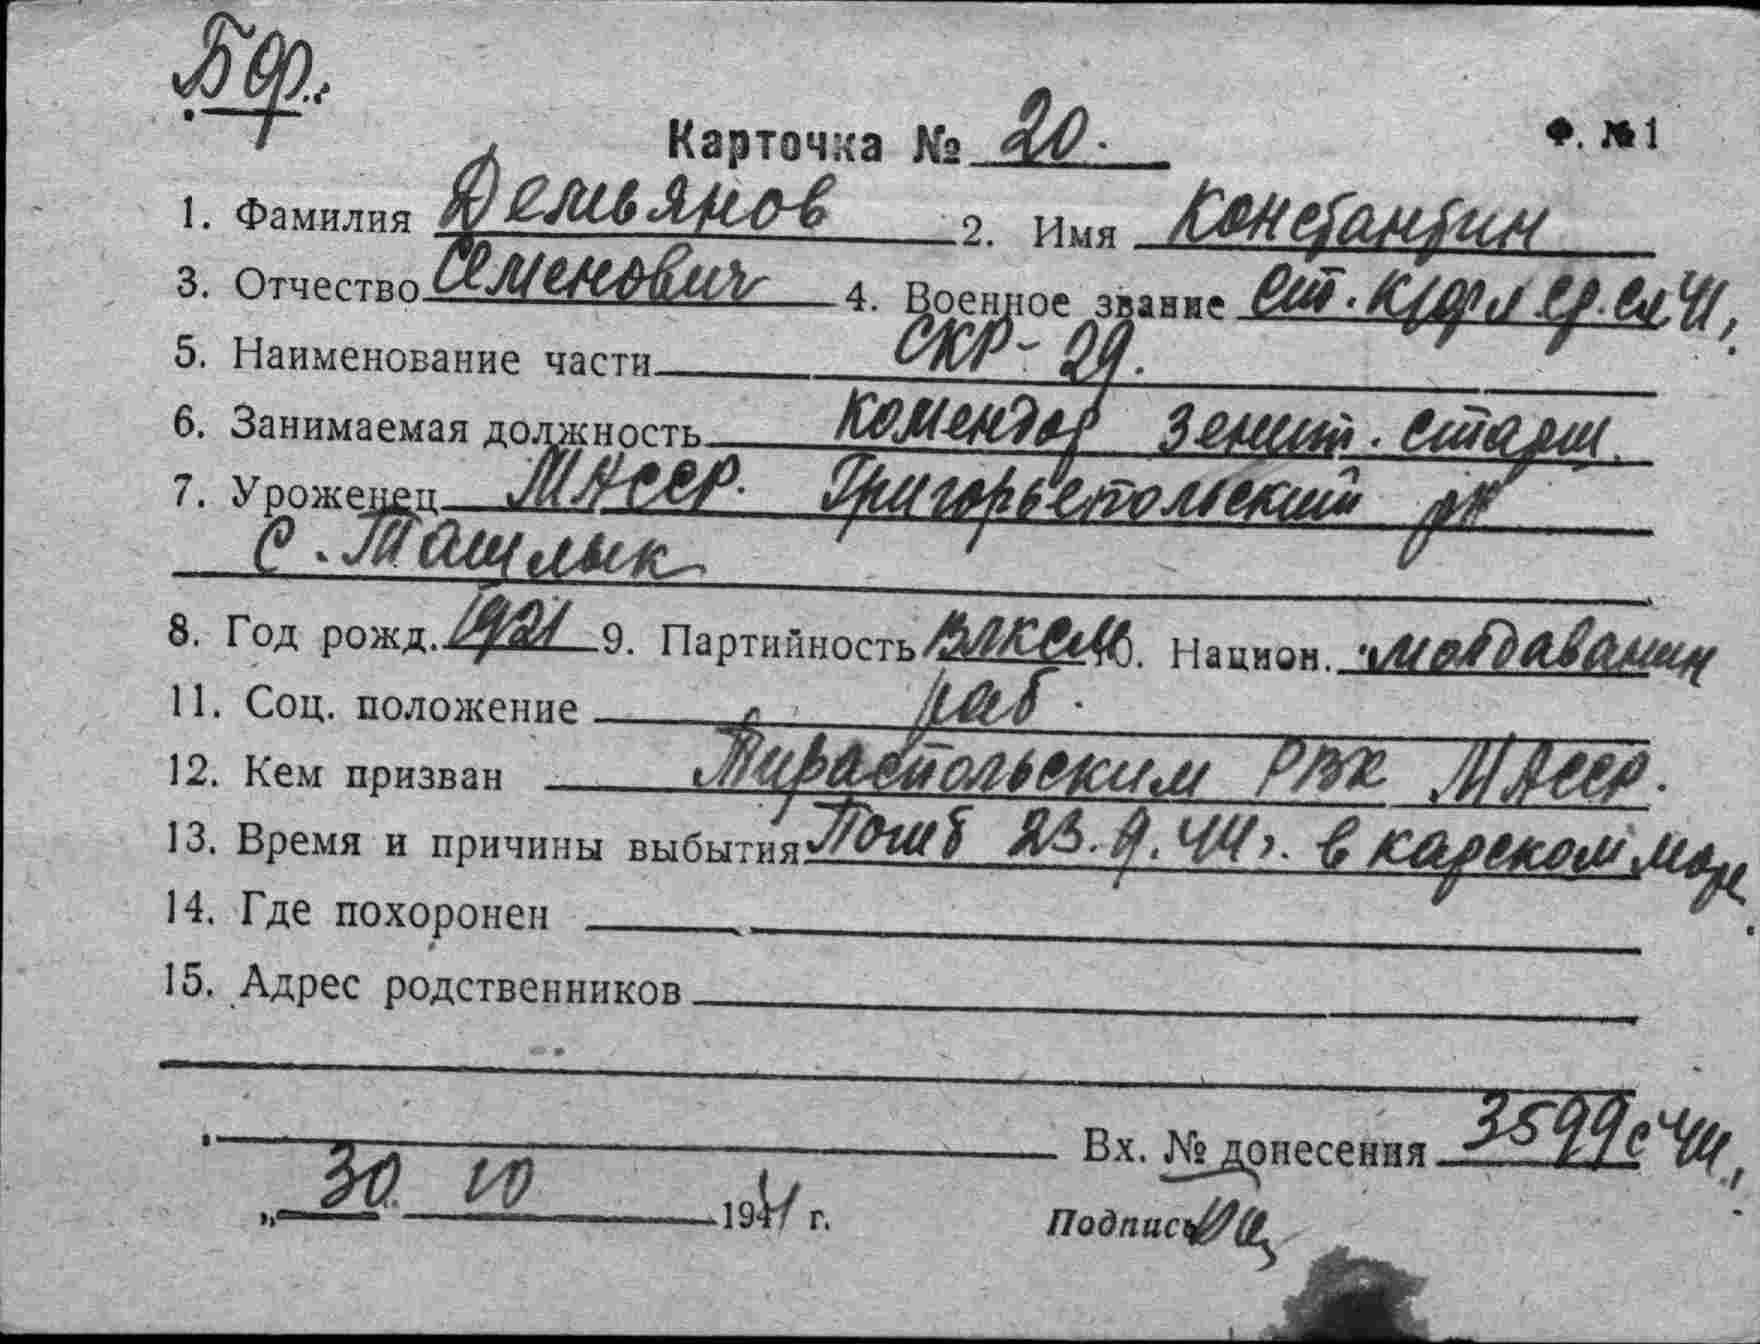 Бер.
Карточка № 20. Ф. №1
1. Фамилия Демьянов 2. Имя Константин
3. Отчество Семенович 4. Военное звание ст. к/фл ср. сл. 41,
5. Наименование части СКР-29.
6. Занимаемая должность комендор зенит. старш.
7. Уроженец МАССР. Григорьепольский рн
с. Ташлык
8. Год рожд. 1921 9. Партийность ВЛКСМ 10. Национ. молдаванин
11. Соц. положение раб.
12. Кем призван Тираспольским РВК МАССР.
13. Время и причины выбытия Погиб 23.9.44г. в карском море.
14. Где похоронен
15. Адрес родственников
Вх. № донесения 3599с 44,
„ 30 10 1944 г. Подпись